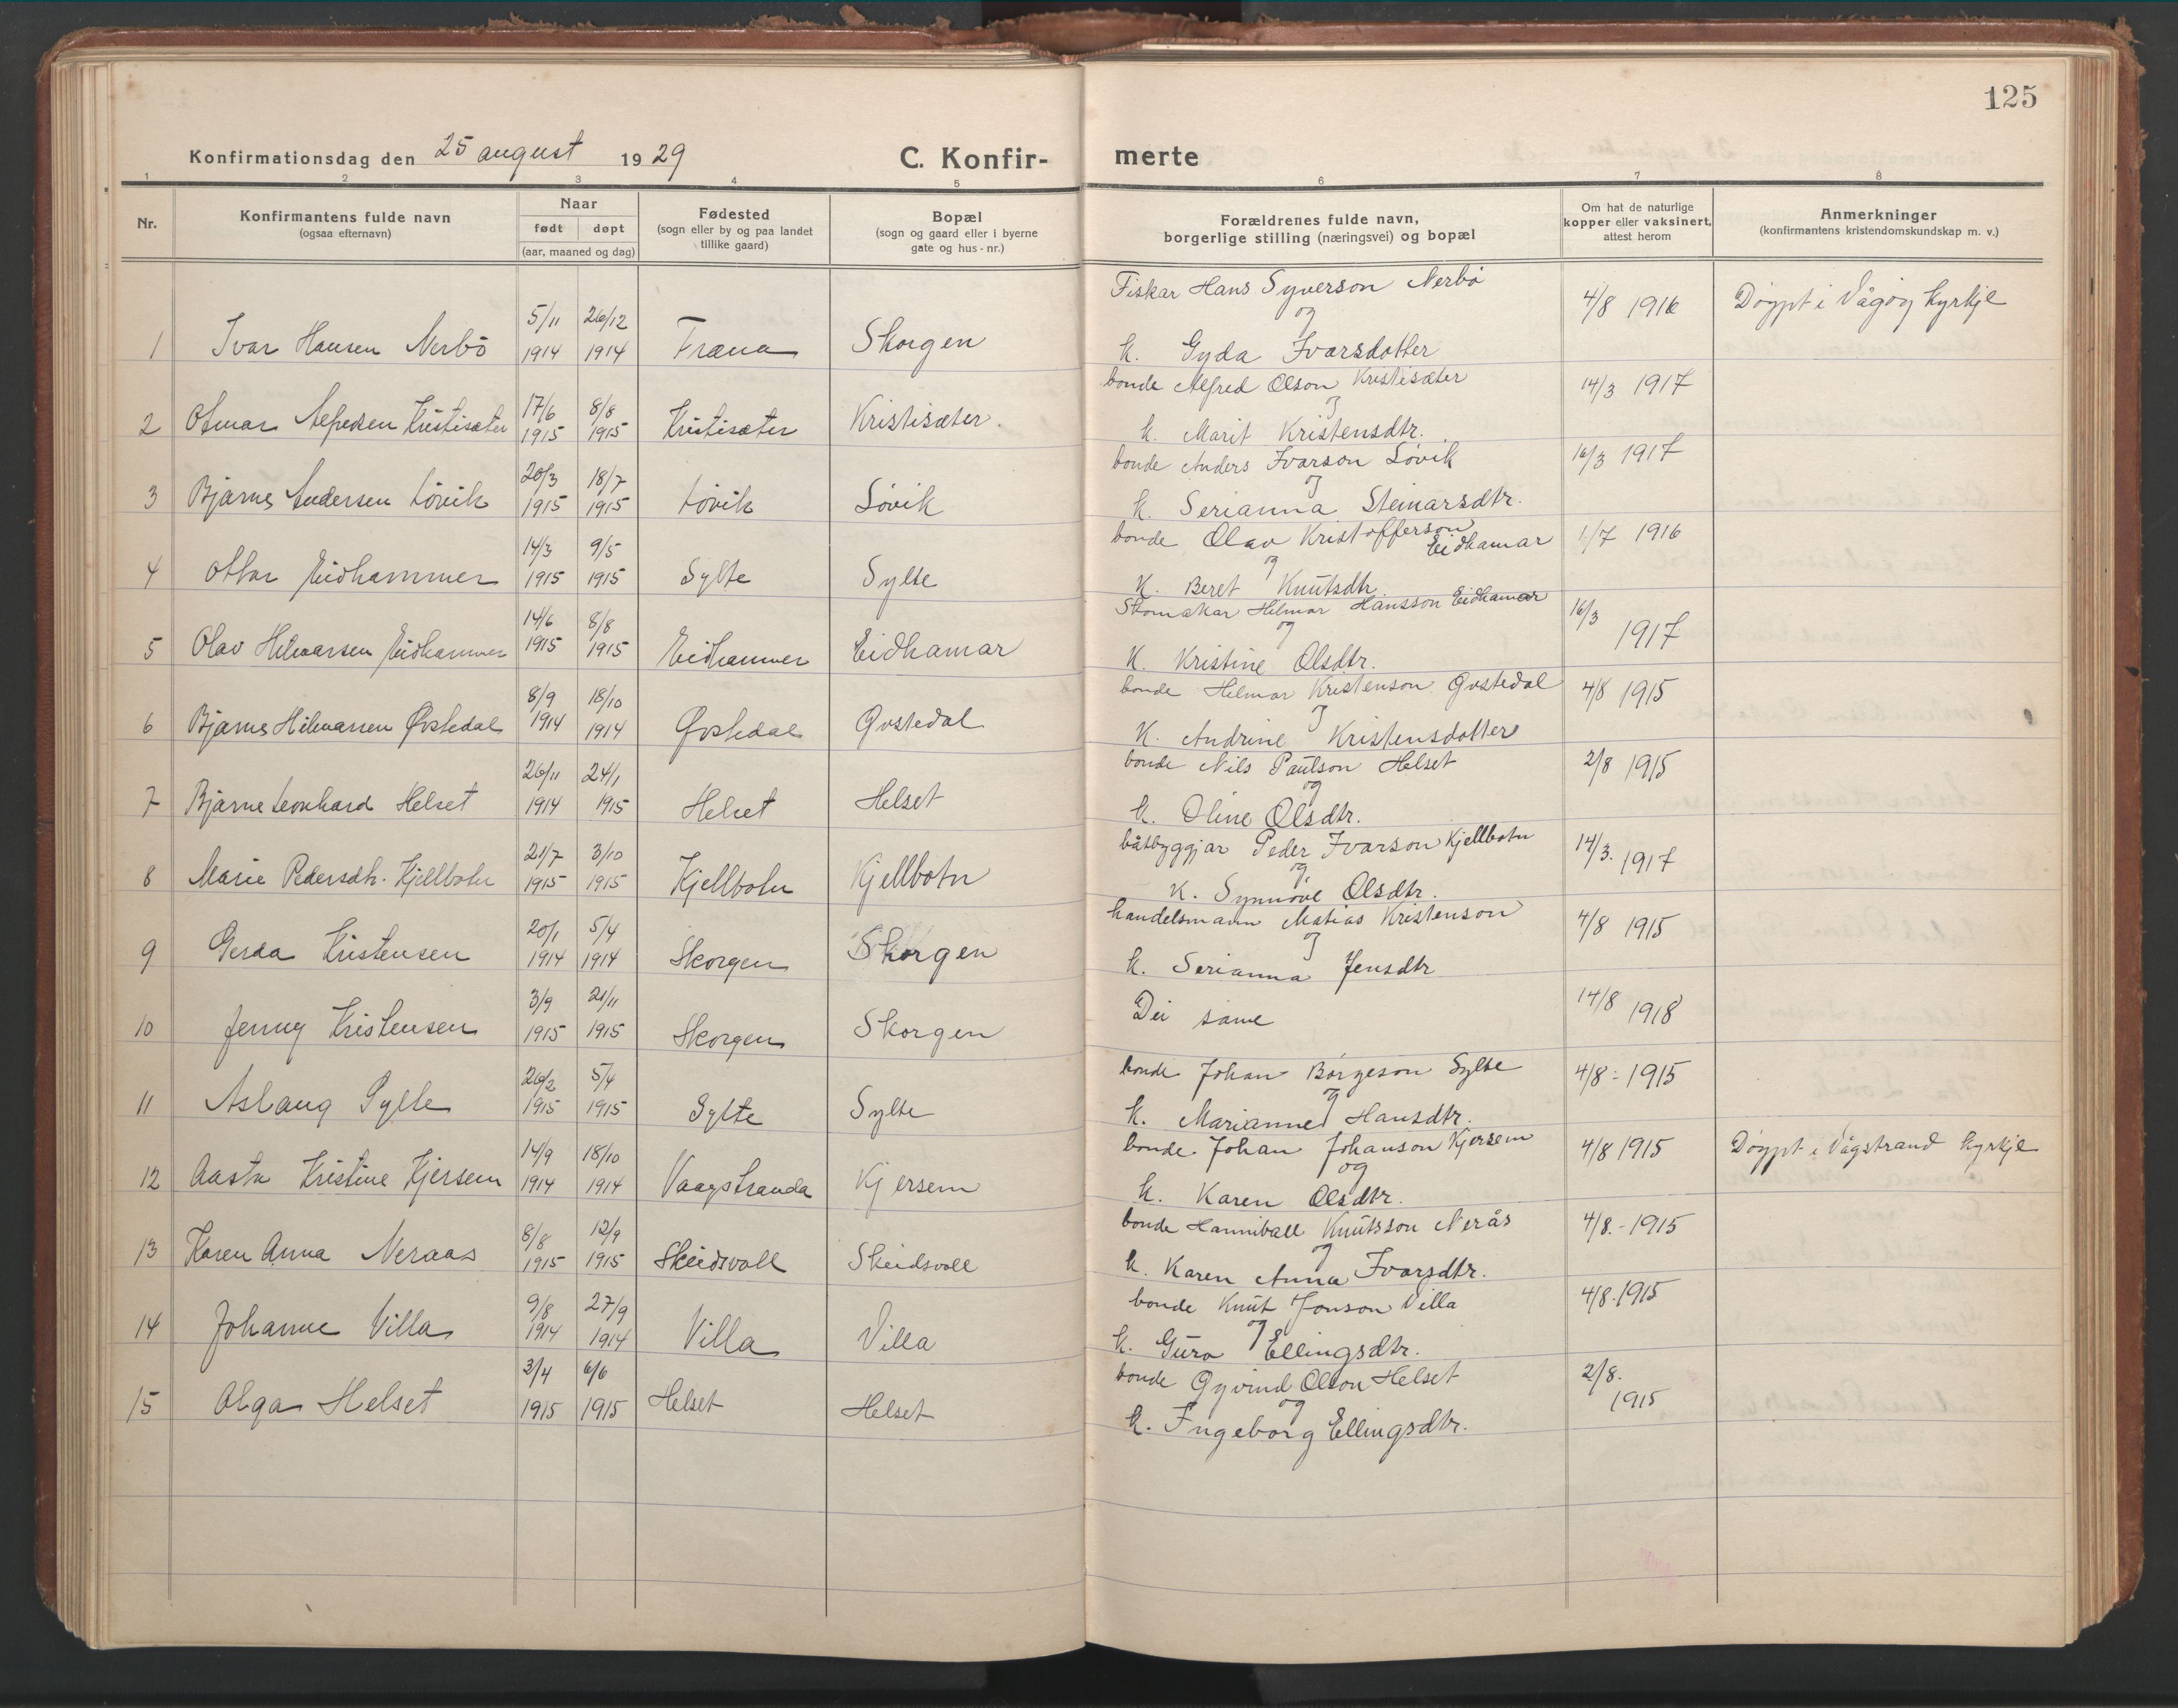 125
Konfirmationsdag den 25 august 1929 C. Konfir- merte
1 2 3 4 5 6 7 8
Nr. Konfirmantens fulde navn (ogsaa efternavn) Naar født døpt (aar, maaned og dag) Fødested (sogn eller by og paa landet tillike gaard) Bopæl (sogn og gaard eller i byerne gate og hus-nr.) Forældrenes fulde navn, borgerlige stilling (næringsvei) og bopæl Om hat de naturlige kopper eller vaksinert, attest herom Anmerkninger (konfirmantens kristendomskundskap m. v.)
1 Ivar Hansen Nerbö 5/11 1914 26/12 1914 Fræna Skorgen Fiskar Hans Syverson Nerbö og k. Gyda Ivarsdotter 4/8 1916 Döypt i Vågöy kyrkje
2 Otmar Alfredsen Kristisæter 17/6 1915 8/8 1915 Kristisæter Kristisæter. bonde Alfred Olson Kristisæter og k. Marit Kristensdtr. 14/3 1917
3 Bjarne Andersen Lövik 20/3 1915 18/7 1915 Lövik Lövik bonde Anders Ivarson Lövik og k. Serianna Steinarsdtr. 16/3 1917
4 Ottar Eidhammer 14/3 1915 9/5 1915 Sylte Sylte bonde Olav Kristofferson Eidhamar og K. Beret Knutsdtr. 1/7 1916
5 Olav Hilmarsen Eidhammer 14/6 1915 8/8 1915 Eidhammer Eidhamar Skomakar Helmar Hansson Eidhamar og K. Kristine Olsdtr. 16/3 1917
6 Bjarne Hilmarsen Øvstedal 8/9 1914 18/10 1914 Øvstedal Övstedal bonde Hilmar Kristenson Övstedal og K. Andrine Kristensdotter 4/8 1915
7 Bjarne Leonhard Helset 26/11 1914 24/1 1915 Helset Helset bonde Nils Paulson Helset og k. Oline Olsdtr. 2/8 1915
8 Marie Pedersdtr. Kjellbotn 21/7 1915 3/10 1915 Kjellbotn Kjellbotn båtbyggjar Peder Ivarson Kjellbotn og K. Synnöve Olsdtr. 14/3. 1917
9 Gerda Kristensen 20/1 1914 5/4 1914 Skorgen Skorgen handelsmann Matias Kristenson og k. Serianna Jensdtr 4/8 1915
10 Jenny Kristensen 3/9 1915 21/11 1915 Skorgen Skorgen Dei same 14/8 1918
11 Aslaug Sylte 26/2 1915 5/4 1915 Sylte Sylte bonde Johan Börgeson Sylte og k. Marianne Hansdtr. 4/8 - 1915
12 Aasta Kristine Kjersem 14/9 1914 18/10 1914 Vaagstranda Kjersem bonde Johan Johanson Kjersem og k. Karen Olsdtr. 4/8 1915 Döypt i Vågstrand kyrkje
13 Karen Anna Neraas 8/8 1915 12/9 1915 Skeidsvoll Skeidsvoll bonde Hanniball Knutsson Nerås og k. Karen Anna Ivarsdtr. 4/8.-1915
14 Johanne Villa 9/8 1914 27/9 1914 Villa Villa bonde Knut Jonson Villa og k. Guro Ellingsdtr. 4/8.1915
15 Olga Helset 3/4 1915 6/6 1915 Helset Helset bonde Öyvind Olson Helset og k. Ingeborg Ellingsdtr. 2/8. 1915